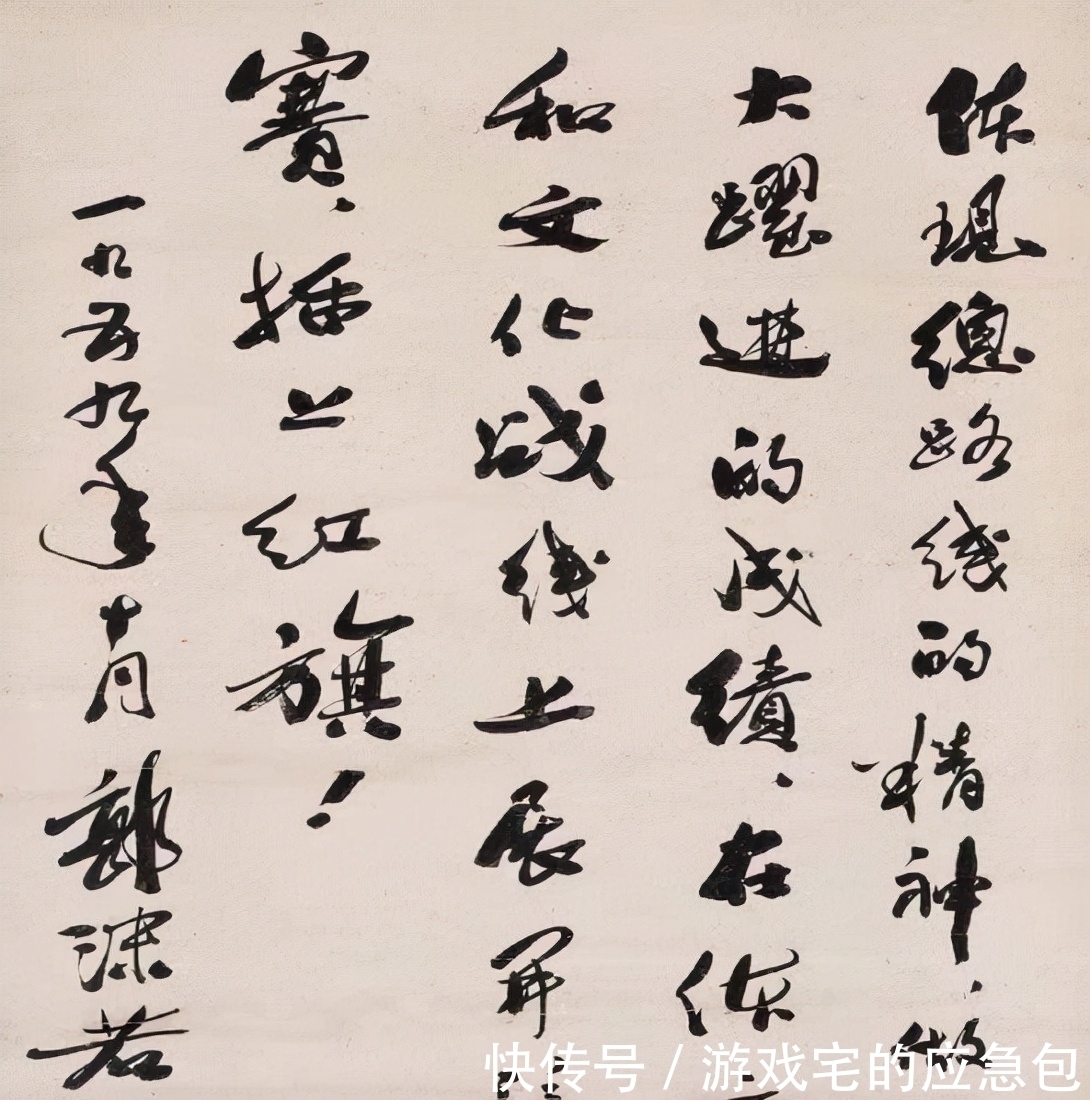 体现總路线的精神，做
大躍進的成績，在体
和文化战线上展开
賽，插上红旗！
一九五九年十月郭沫若
快传号/游戏宅的应急包